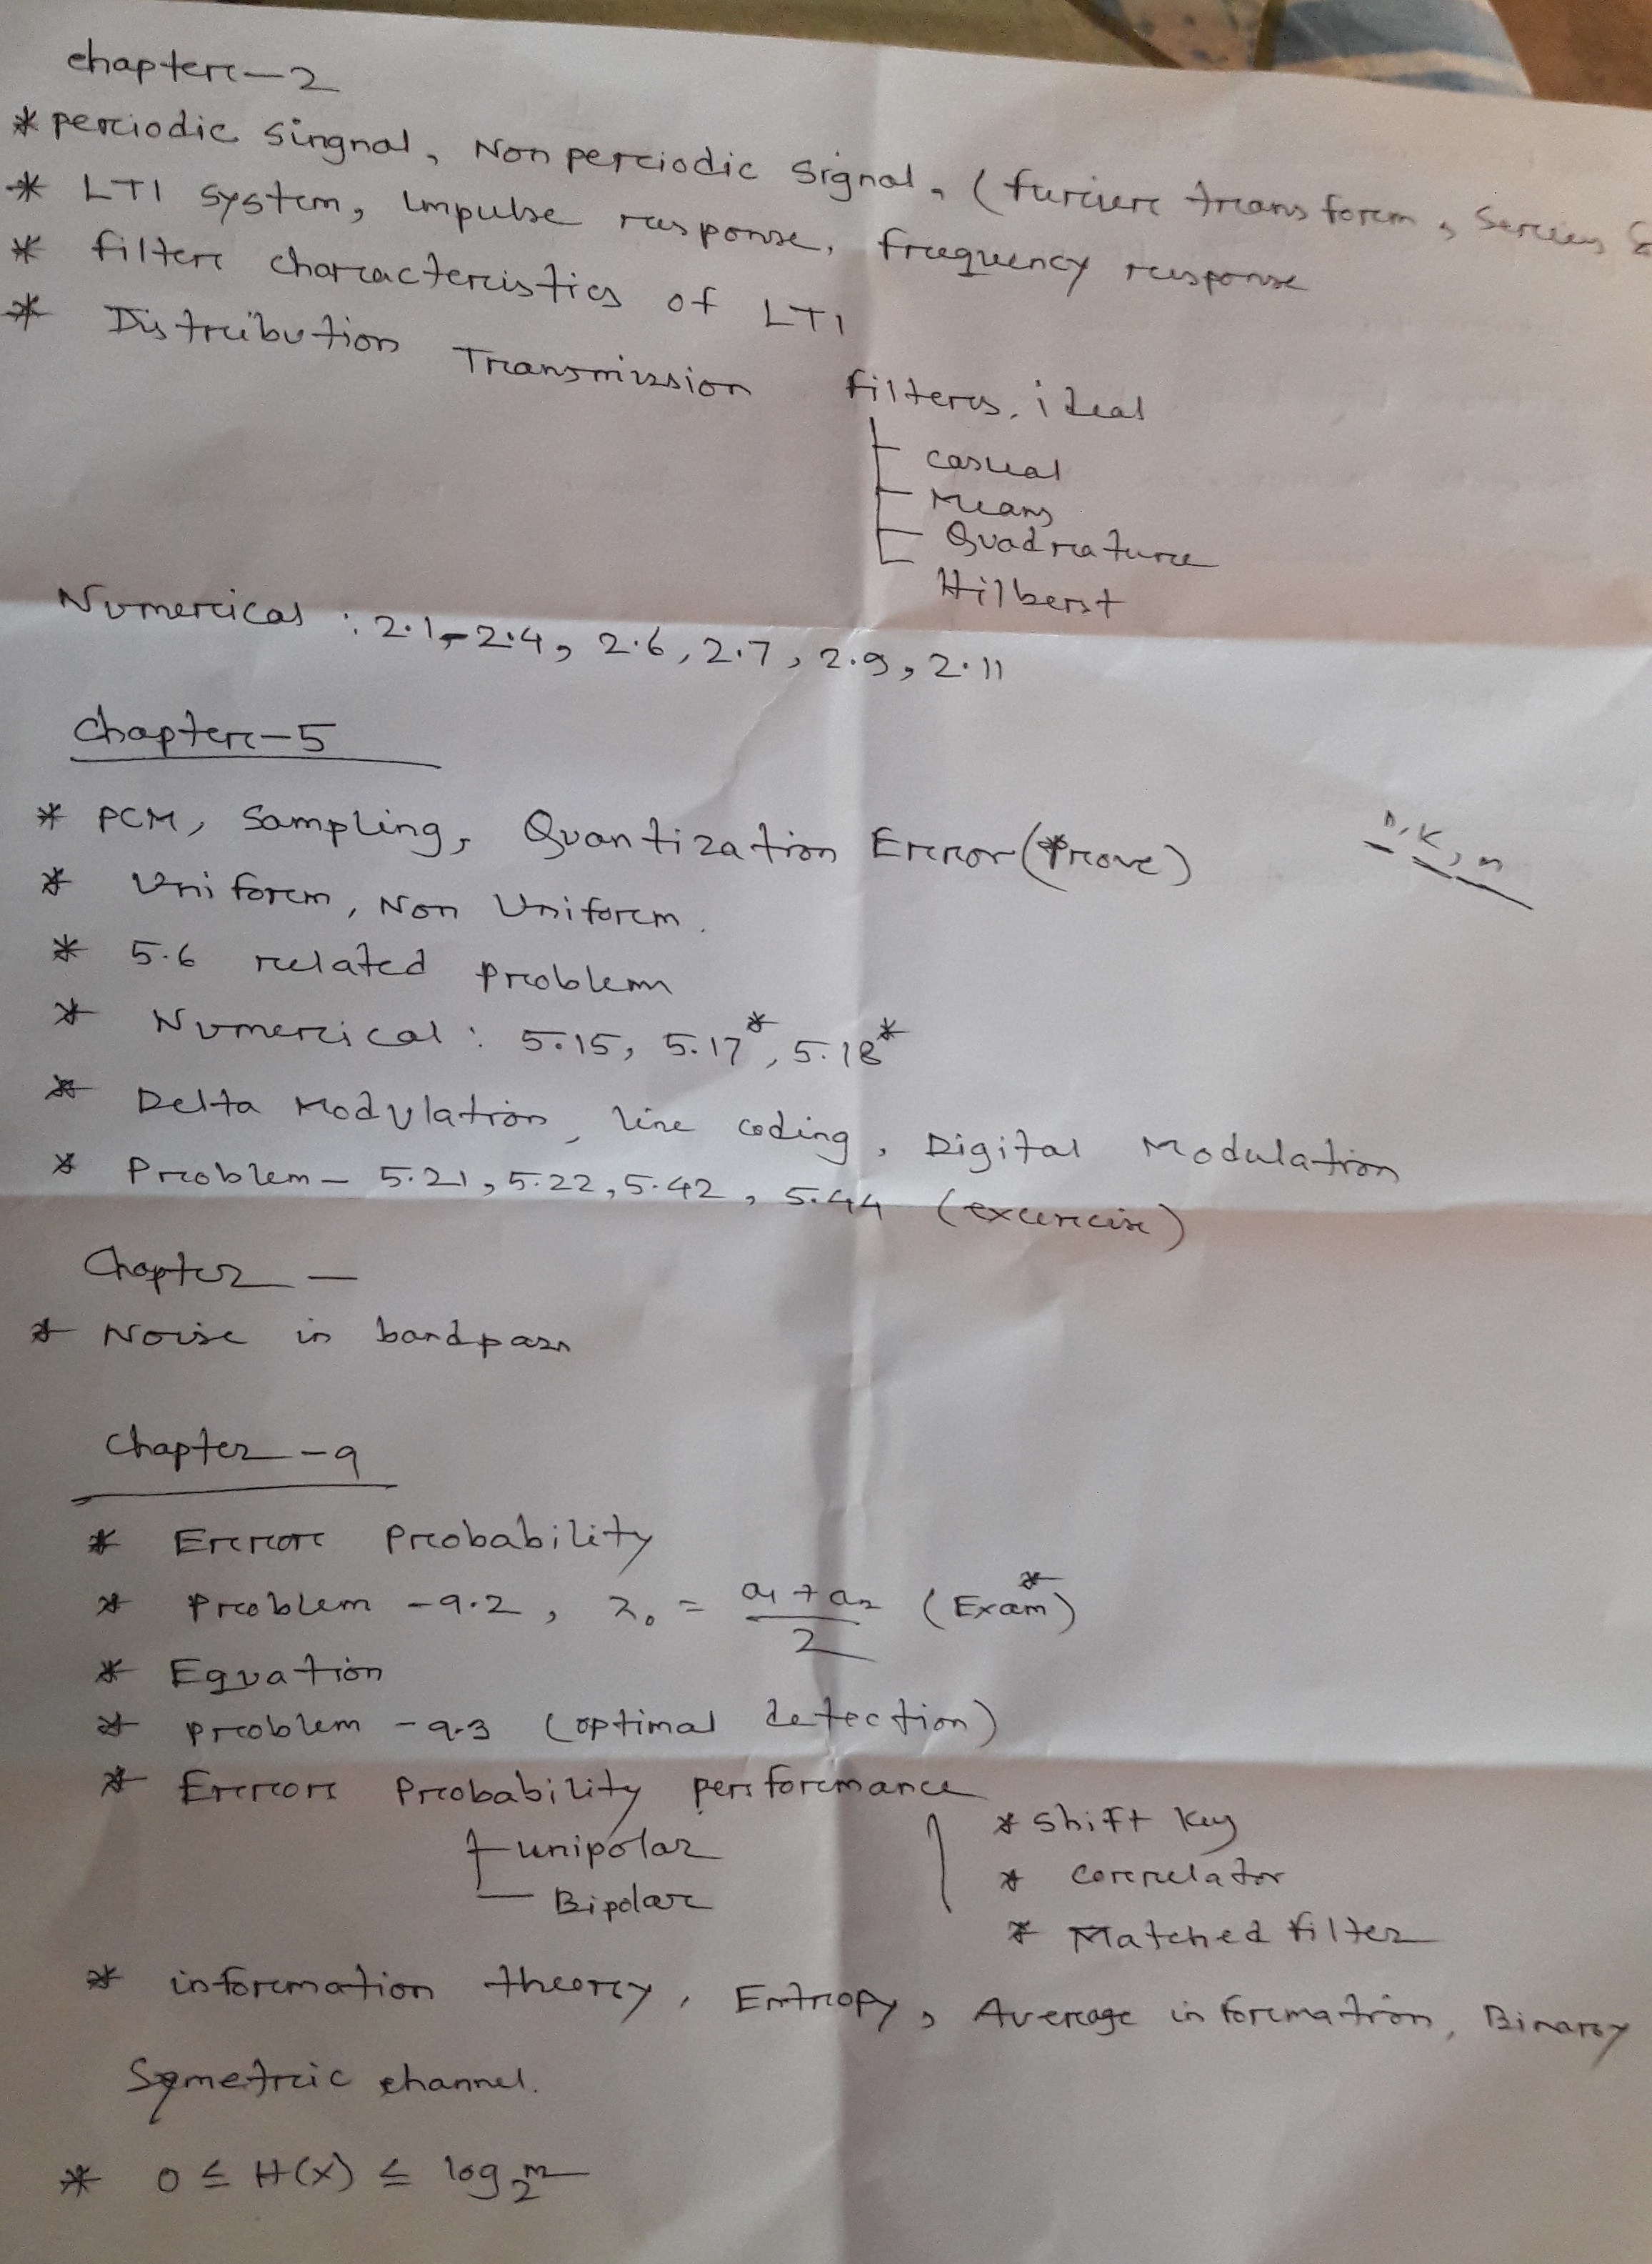 chapter-2
* periodic singnal, Non periodic signal, (furiere trans form, Series &
* LTI system, impulse response, frequency response
* filter characteristics of LTI
* Distribution Transmission filters, ideal
casual
Means
Quadrature
Hilbert
Numerical : 2.1-2.4, 2.6, 2.7, 2.9, 2.11
Chapter-5
* PCM, Sampling, Quantization Error (*Prove)
n, k, n
* Uniform, Non Uniform.
* 5.6 related problem
* Numerical : 5.15, 5.17*, 5.18*
* Delta Modulation, line coding, Digital Modulation
* Problem - 5.21, 5.22, 5.42, 5.44 (excercise)
Chapter -
* Noise in bandpass
Chapter -9
* Error Probability
* Problem -9.2, λ₀ = a₁ + a₂ / 2 (Exam*)
* Equation
* problem -9.3 (optimal detection)
* Errors Probability performance
unipolar
Bipolar
* Shift key
* correlator
* Matched filter
* information theory, Entropy, Average information, Binary
Symetric channel.
* 0 ≤ H(X) ≤ log₂ᵐ